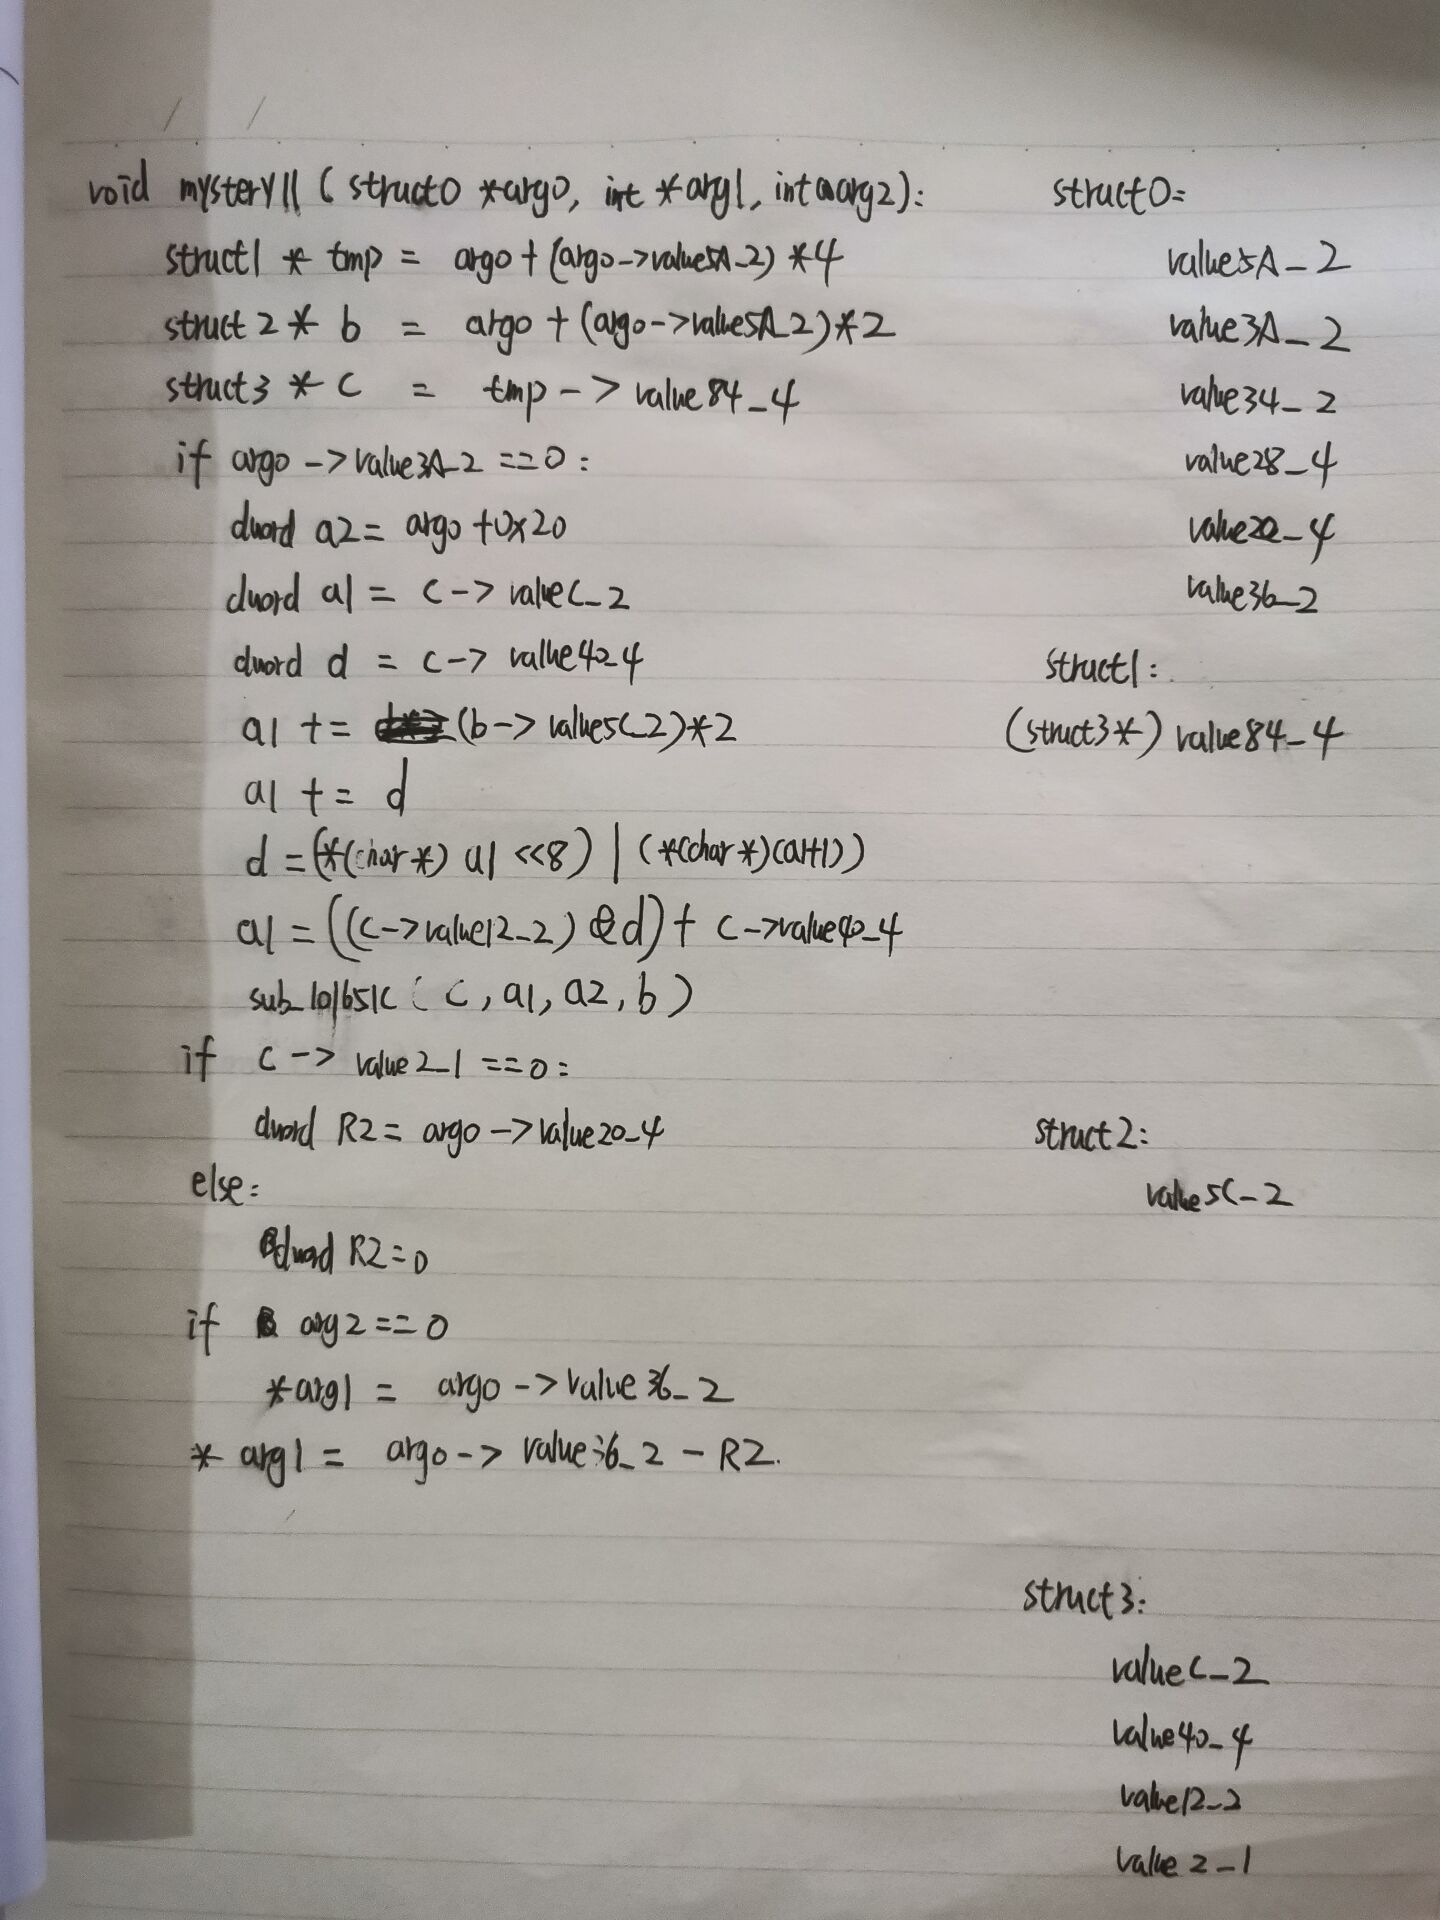 void mystery11 ( struct0 *arg0, int *arg1, int arg2):
struct1 * tmp = arg0 + (arg0->value5A_2) *4
struct 2 * b = arg0 + (arg0->value5A_2)*2
struct3 * c = tmp -> value84_4
if arg0 -> value3A_2 ==0 :
dword a2 = arg0 +0x20
dword a1 = c -> valueC_2
dword d = c -> value40_4
a1 += (b-> value5C_2)*2
a1 += d
d = (*(char*) a1 <<8) | (*(char *)(a1+1))
a1 = ((c->value12_2) & d) + c->value40_4
sub_101651C ( c, a1, a2, b)
if c -> value 2_1 ==0 :
dword R2 = arg0 -> value20_4
else:
dword R2=0
if arg2 == 0
*arg1 = arg0 -> value 36_2
* arg1 = arg0 -> value36_2 - R2.
struct0:
value5A_2
value3A_2
value34_2
value28_4
value20_4
value36_2
struct1 :
(struct3*) value84_4
struct2:
value5C_2
struct3:
valueC_2
value40_4
value12_2
value 2_1